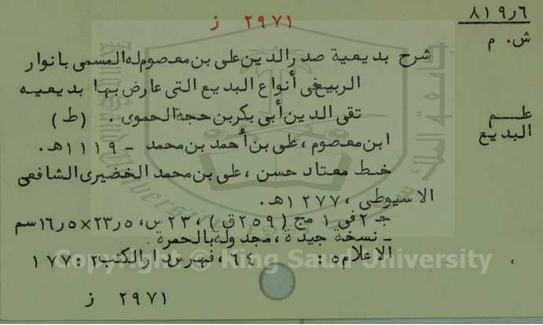 ٢٩٧١ ز
٨١٩٫٦
ش. م
علم
البديع
شرح بديعية صدر الدين على بن معصوم له المسمى بانوار
الربيع فى أنواع البديع التى عارض بها بديعيه
تقى الدين أبى بكر بن حجة الحموى . (ط)
ابن معصوم ، على بن أحمد بن محمد - ١١١٩هـ.
خط معتاد حسن ، على بن محمد الخضيرى الشافعى
الاسيوطى ، ١٢٧٧هـ.
جـ ٢ فى ١ مج (٢٥٩ق) ، ٢٣ س ، ٢٣٫٥×١٦٫٥سم
- نسخة جيدة ، مجدولة بالحمرة .
الاعلام ٥ : ٦٤ ، فهرس دار الكتب ٢ : ١٧٧
Copyright © King Saud University
٢٩٧١ ز